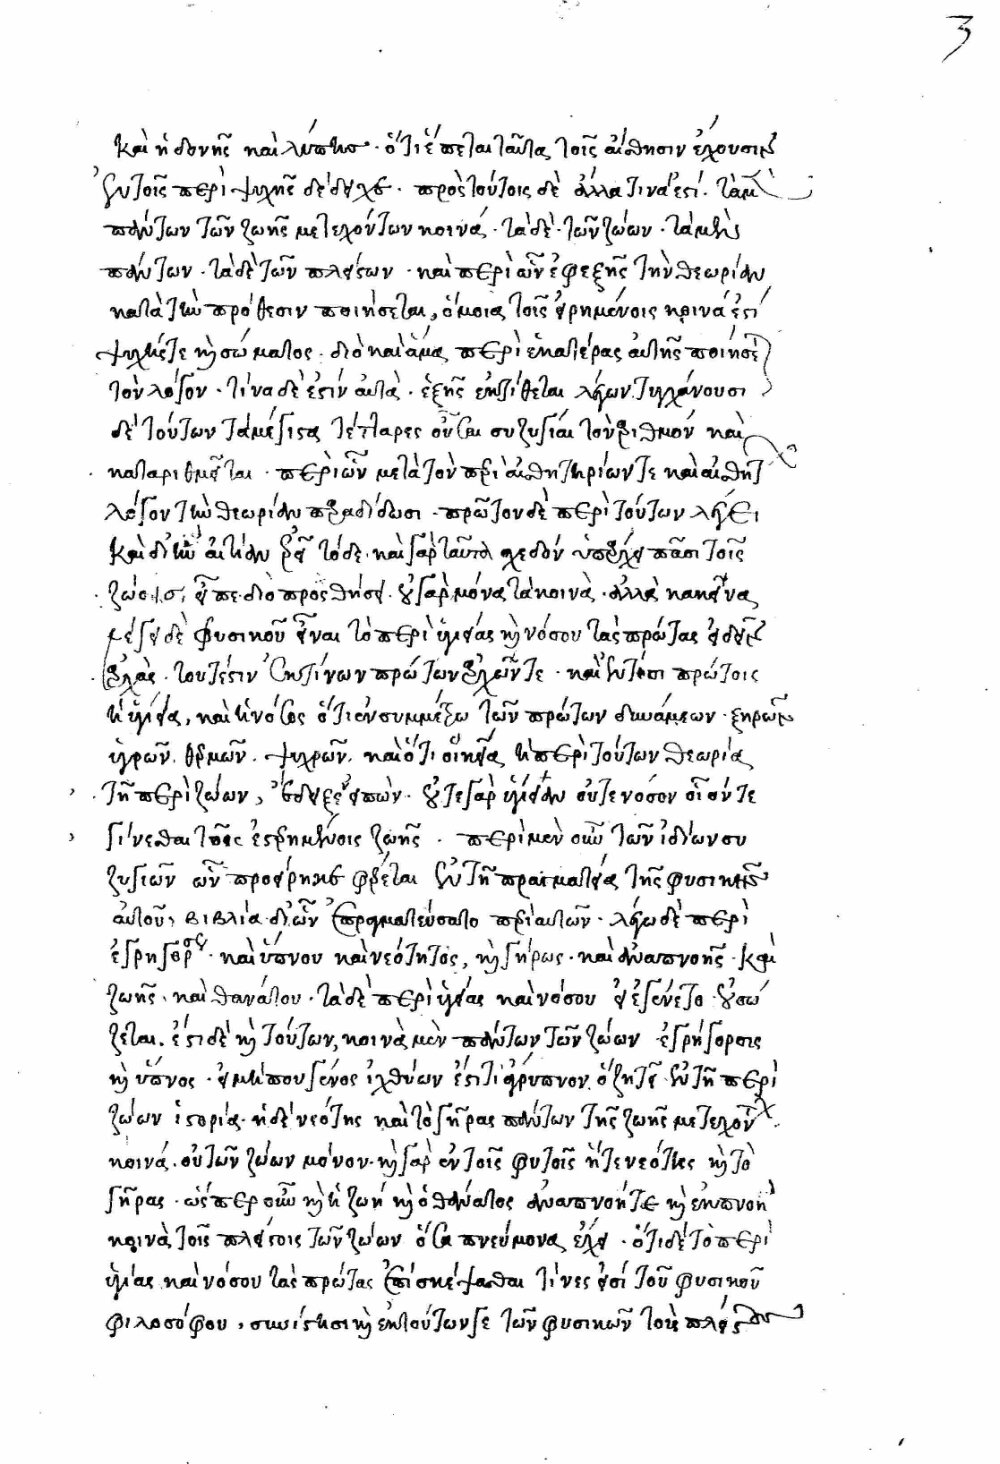 3
καὶ ἡδονῆς καὶ λύπης· ὅτι ἕπεται ταῦτα τοῖς αἴσθησιν ἔχουσιν
ἐν τοῖς περὶ ψυχῆς δέδεικται· πρὸς τούτοις δὲ ἄλλα τινά ἐστι· τὰ μὲν
πάντων τῶν ζωῆς μετεχόντων κοινά· τὰ δὲ τῶν ζώων· τὰ μὲν
πάντων· τὰ δὲ τῶν πλείων· καὶ περὶ ὧν ἐφεξῆς τὴν θεωρίαν
κατὰ τὴν πρόθεσιν ποιήσεται, ὅμοια τοῖς εἰρημένοις κοινά ἐστι
ψυχῆς τε καὶ σώματος· διὸ καὶ ἅμα περὶ ἑκατέρας αὐτῆς ποιήσε
τὸν λόγον· τίνα δέ ἐστιν αὐτὰ ἑξῆς ἐκτίθεται λέγων τυγχάνουσι
δὲ τούτων τὰ μέγιστα τέτταρες οὖσαι συζυγίαι τὸν ἀριθμόν καὶ
καταριθμεῖται· περὶ ὧν μετὰ τὸν περὶ αἰσθητηρίων τε καὶ αἰσθητ
λόγον τὴν θεωρίαν παραδίδωσι· πρῶτον δὲ περὶ τούτων λέγει
καὶ δι' ἣν αἰτίαν ἐρεῖ τόδε· καὶ γὰρ ταῦτα σχεδὸν ὑπάρχει πᾶσι τοῖς
ζώοις, εἶπε· διὸ προσθήσει· οὐ γὰρ μόνα τὰ κοινὰ· ἀλλὰ κἀκεῖνα
λέγει δὲ φυσικοῦ εἶναι τὸ περὶ ὑγιείας καὶ νόσου τὰς πρώτας εἰδέναι
ἀρχάς· τουτέστιν ἐκ τίνων πρώτων ἀρχῶν τε· καὶ ἐν τίσι πρώτοις
ἡ ὑγίεια, καὶ ἡ νόσος ὅτι ἐν συμμέτρῳ τῶν πρώτων δυνάμεων· ξηρῶν
ὑγρῶν· θερμῶν· ψυχρῶν· καὶ ὅτι οἰκεία ἡ περὶ τούτων θεωρία
τῇ περὶ ζώων, ἔδειξεν εἰπών· οὔτε γὰρ ὑγίειαν οὔτε νόσον οἷόν τε
γίνεσθαι τοῖς ἐστερημένοις ζωῆς· περὶ μὲν οὖν τῶν ἰδίων συ
ζυγιῶν ὧν προείρηκε φέρεται ἐν τῇ πραγματείᾳ τῆς φυσικῆς
αὐτοῦ, βιβλία δι' ὧν ἐπραγματεύσατο περὶ αὐτῶν· λέγω δὲ περὶ
ἐγρηγόρσεως· καὶ ὕπνου καὶ νεότητος, καὶ γήρως· καὶ ἀναπνοῆς· καὶ
ζωῆς· καὶ θανάτου· τὰ δὲ περὶ ὑγιείας καὶ νόσου εἰ ἐγένετο οὐ σώ
ζεται. ἔστι δὲ καὶ τούτων, κοινὰ μὲν πάντων τῶν ζώων ἐγρήγορσις
καὶ ὕπνος· εἰ μή που γένος ἰχθύων ἐστί τι ἄυπνον ὃ ζητεῖ ἐν τῇ περὶ
ζώων ἱστορίᾳ· ἡ δὲ νεότης καὶ τὸ γῆρας πάντων τῆς ζωῆς μετεχόντων
κοινά· οὐ τῶν ζώων μόνον· καὶ γὰρ ἐν τοῖς φυτοῖς ἥ τε νεότης καὶ τὸ
γῆρας· ὥσπερ οὖν καὶ ἡ ζωὴ καὶ ὁ θάνατος ἀναπνοή τε καὶ ἐκπνοὴ
κοινὰ τοῖς πλείστοις τῶν ζώων ὅσα πνεύμονα ἔχει· ὅτι δὲ τὸ περὶ
ὑγιείας καὶ νόσου τὰς πρώτας ἐπισκέψασθαι τινές εἰσι τοῦ φυσικοῦ
φιλοσόφου, συνίστησι καὶ ἐκ τούτων γε τῶν φυσικῶν τοὺς πλείστους